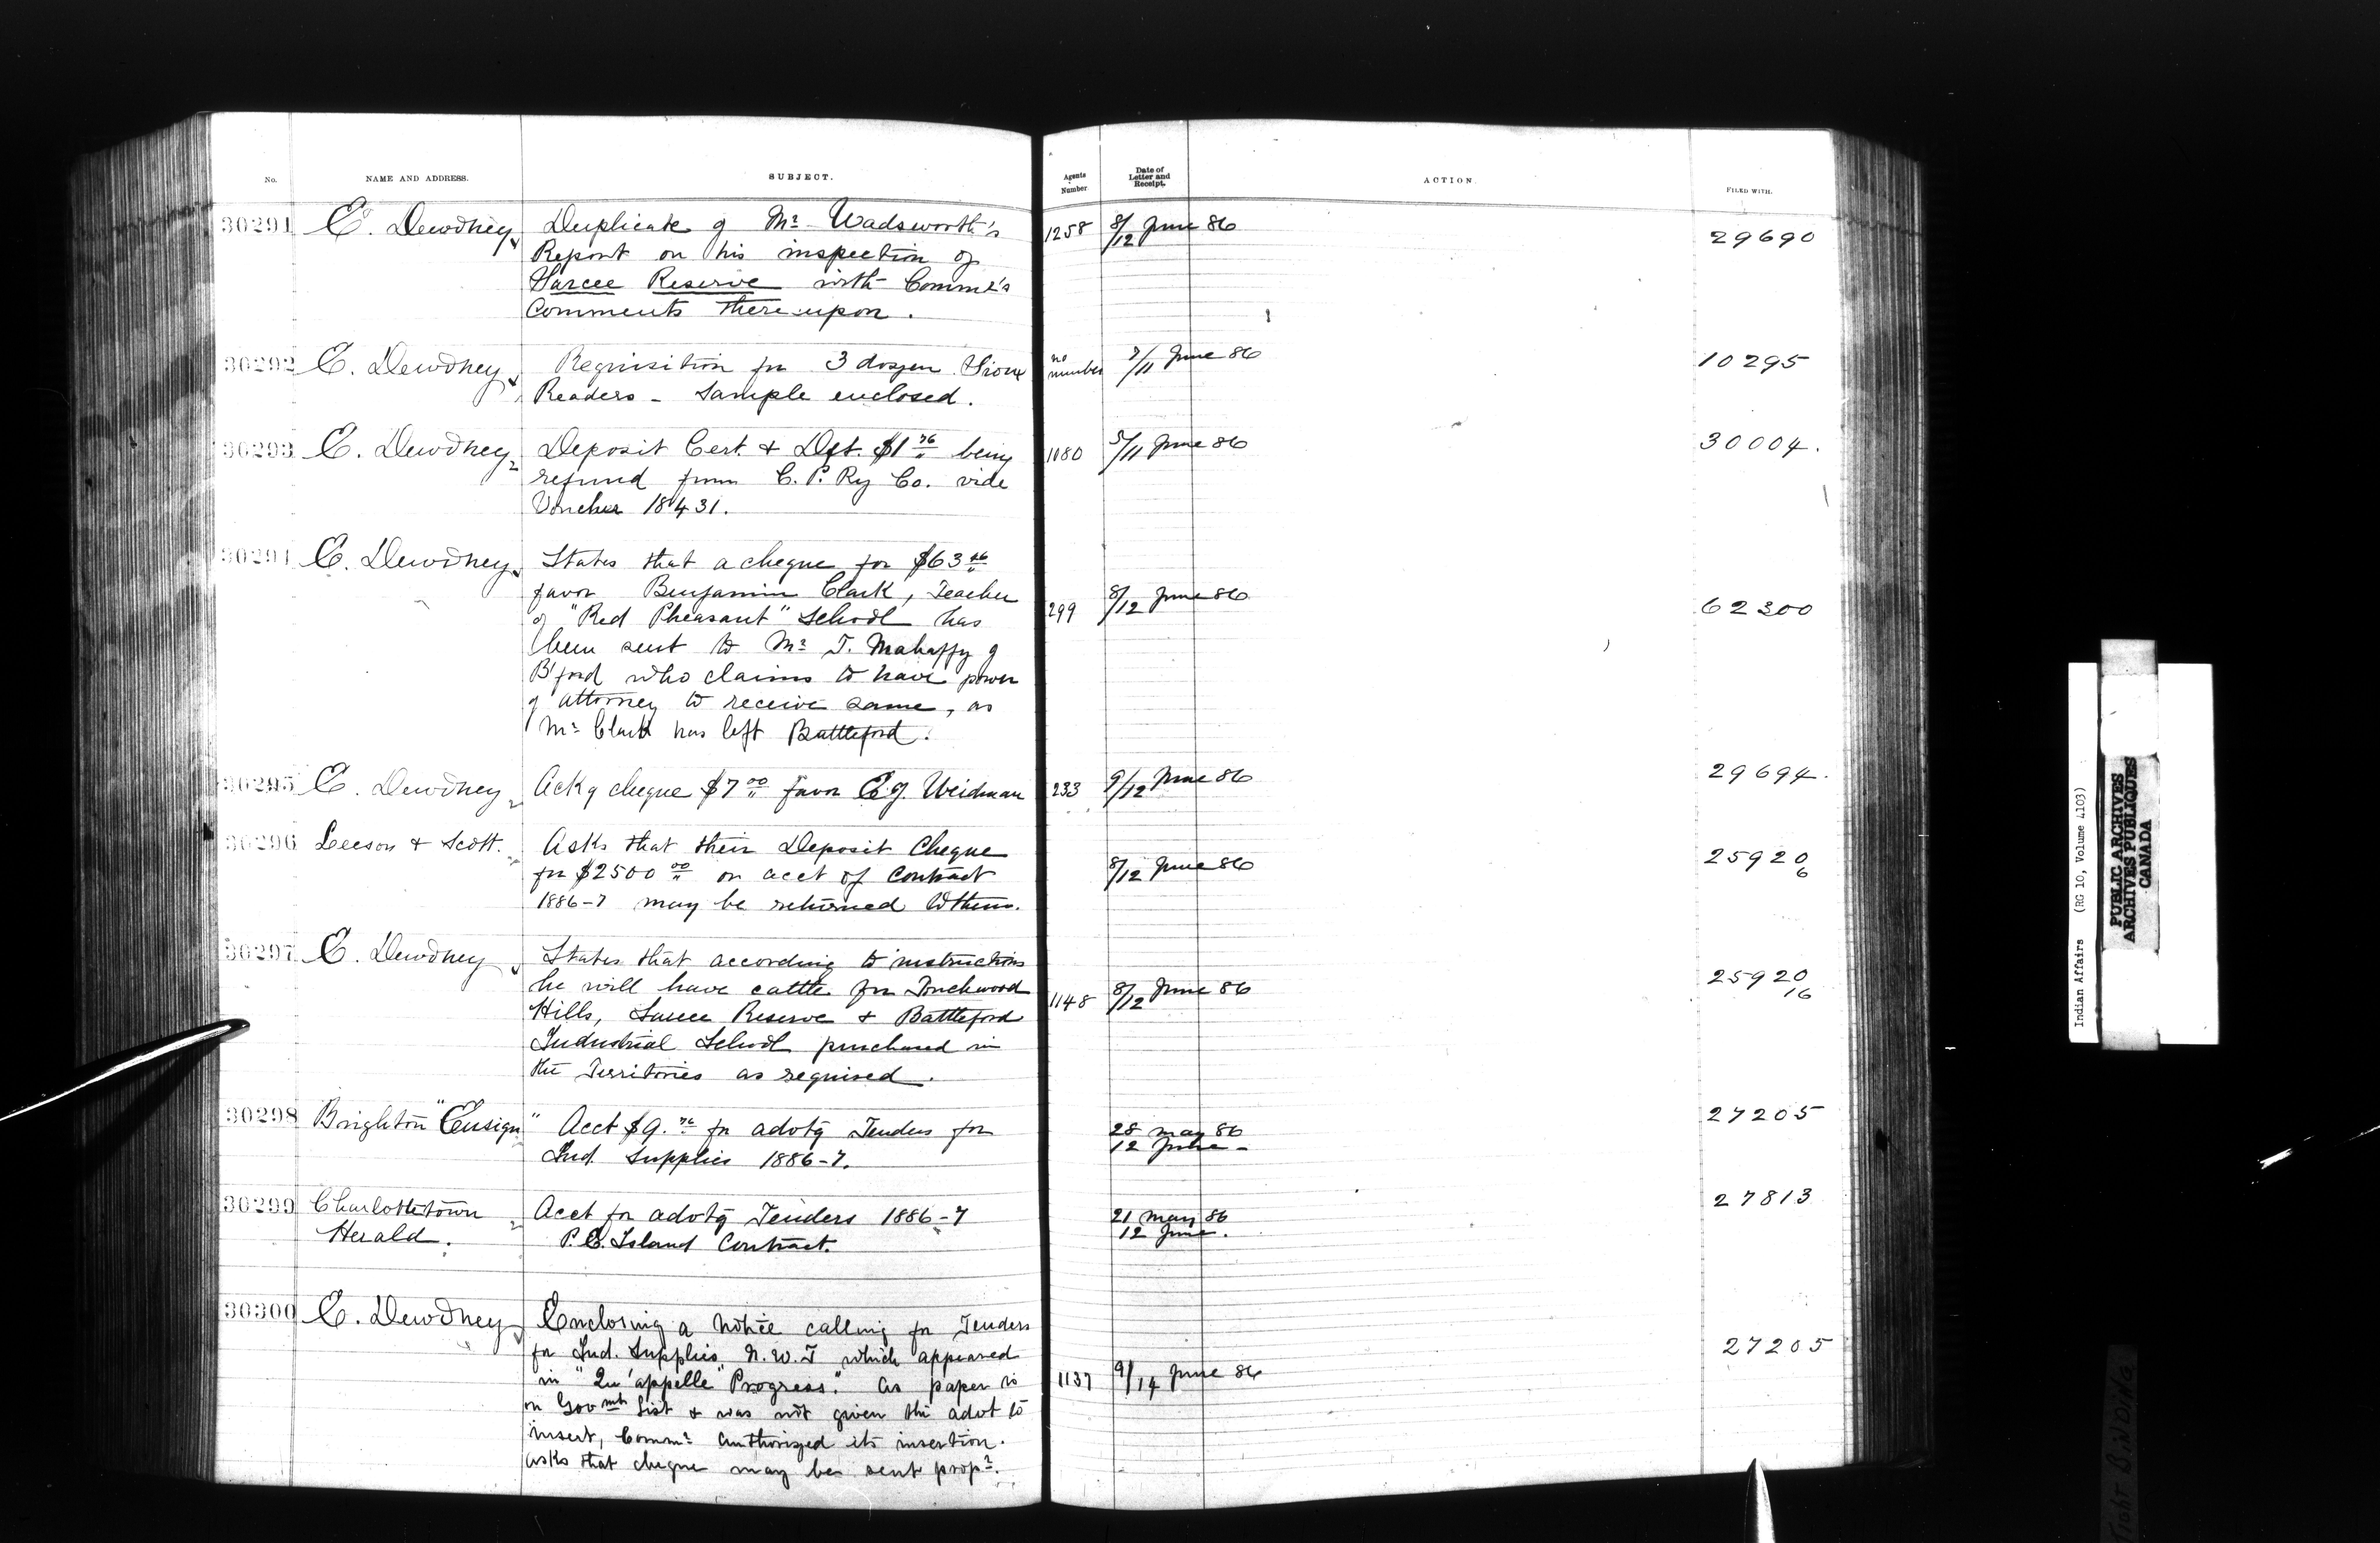 No. NAME AND ADDRESS. SUBJECT. Agents Number Date of Letter and Receipt. ACTION FILED WITH.
30291 E. Dewdney Duplicate of Mr. Wadsworth's 1258 8/12 June 86 29690
Report on his inspection of
Sarcee Reserve with Commr's
Comments there-upon.
30292 E. Dewdney Requisition for 3 dozen Sioux no number 7/11 June 86 10295
Readers - Sample enclosed.
30293 E. Dewdney Deposit Cert. & Dft. $1 76 being 1080 5/11 June 86 30004.
refund from C. P. Ry Co. vide
Voucher 18431.
30294 E. Dewdney States that a cheque for $63
favor Benjamin Clark, Teacher 299 8/12 June 86 62300
of "Red Pheasant" School has
been sent to Mr. T. Mahaffy of
B'ford who claims to have power
of attorney to receive same, as
Mr. Clark has left Battleford.
30295 E. Dewdney Ack of cheque $7 00 favor Weidman 233 9/12 June 86 29694.
30296 Leeson & Scott. Asks that their Deposit Cheque
for $2500 00 on acct of Contract 8/12 June 86 25920 6
1886-7 may be returned to them.
30297 E. Dewdney States that according to instructions
he will have cattle for Touchwood 1148 8/12 June 86 25920 16
Hills, Sarcee Reserve & Battleford
Industrial School purchased in
the Territories as required.
30298 Brighton "Ensign" Acct $9. 76 for advtg Tenders for 28 May 86 27205
Ind. Supplies 1886-7. 12 June -
30299 Charlottetown Acct for advtg Tenders 1886-7 21 May 86 27813
Herald. P. E. Island Contract. 12 June.
30300 E. Dewdney Enclosing a notice calling for Tenders
for Ind. Supplies N. W. T which appeared 27205
in "Qu'appelle Progress." As paper is 1137 9/14 June 86
on Govmt List & was not given the advt to
insert, Commr. authorized its insertion.
asks that cheque may be sent propr.
Indian Affairs (RG 10, Volume 4103)
PUBLIC ARCHIVES
ARCHIVES PUBLIQUES
CANADA
TIGHT BINDING